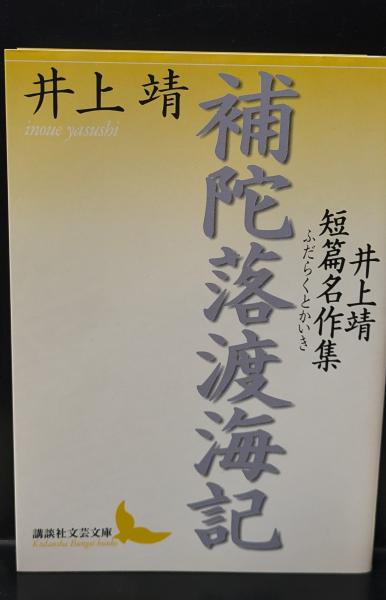 井上 靖
inoue yasushi
補陀落渡海記
井上靖
短篇名作集
ふだらくとかいき
講談社文芸文庫
Kodansha Bungei bunko